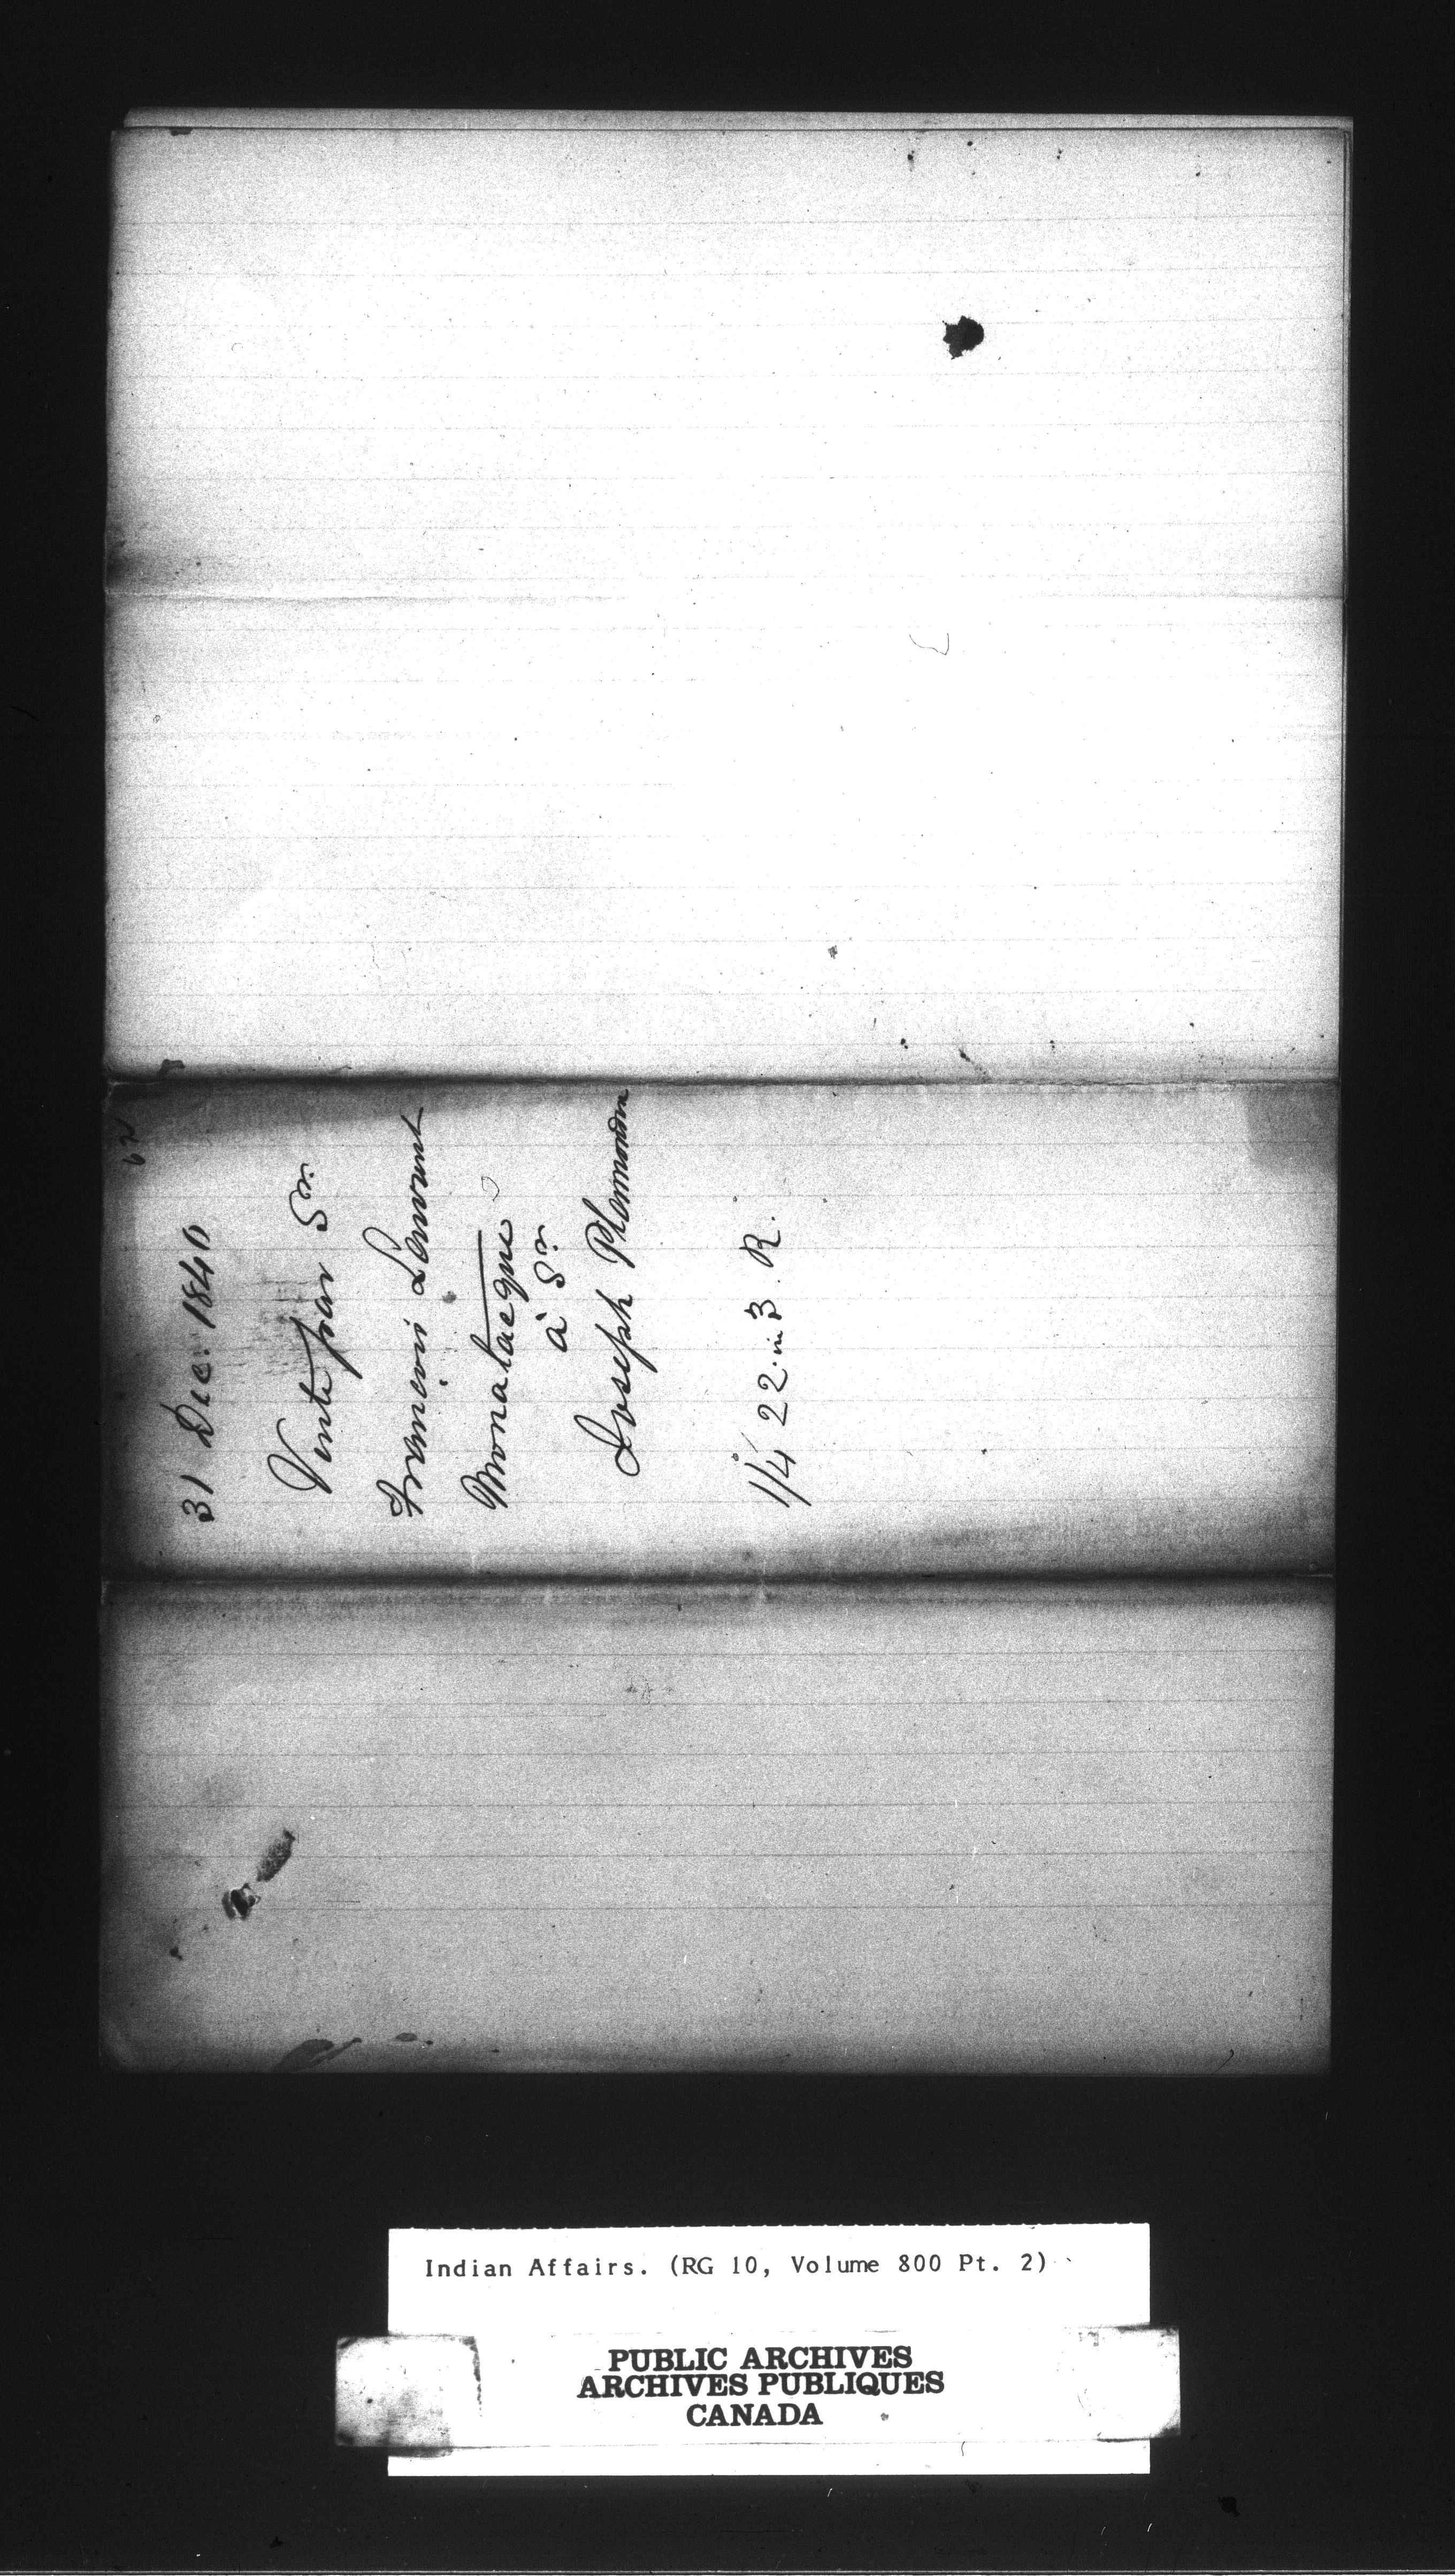 31 Dec. 1840
Vente par Sr.
Francois Laurent
Monataeque
à Sr.
Joseph Plamondon
1/4 22 in 3 R.
Indian Affairs. (RG 10, Volume 800 Pt. 2)
PUBLIC ARCHIVES
ARCHIVES PUBLIQUES
CANADA